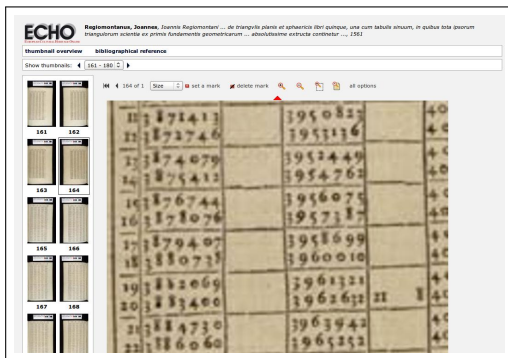 ECHO
Regiomontanus, Joannes, Ioannis Regiomontani ... de triangvlis planis et sphaericis libri quinque, una cum tabulis sinuum, in quibus tota ipsorum
triangulorum scientia ex primis fundamentis geometricarum ... absolutissime extructa continetur ..., 1561
thumbnail overview bibliographical reference
Show thumbnails: 161 - 180
164 of 1 Size set a mark delete mark all options
161 162
163 164
165 166
167 168
11 3871413 3950823 40
12 3872746 40
13 3874079 40
14 3875412 3954762 40
15 3876744 3956075 40
16 3878076 3957387 40
17 3879407 3958699
18 3880738 3960010
19 3882069 3961321
20 3883400 3962632 21 8 40
21 3884730 3963942
22 3886060 3965252